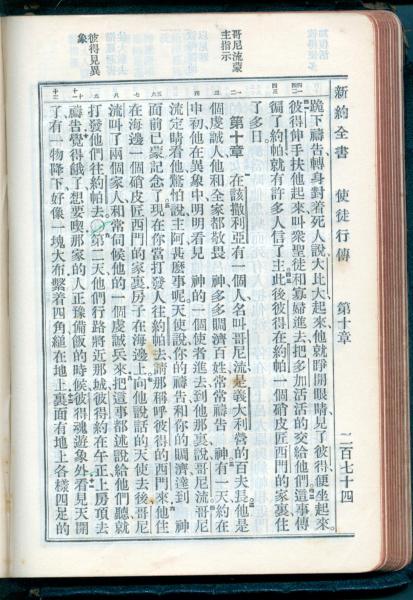 新約全書 使徒行傳 第十章 二百七十四
哥尼流蒙
主指示
彼得見異
象
跪下禱告轉身對着死人說大比大起來他就睜開眼睛見了彼得便坐起來。
彼得伸手扶他起來叫衆聖徒和寡婦進去把多加活活的交給他們這事傳
徧了約帕就有許多人信了主此後彼得在約帕一個硝皮匠西門的家裏住
了多日
第十章 在該撒利亞有一個人名叫哥尼流是義大利營的百夫長他是
個虔誠人他和全家都敬畏 神多多賙濟百姓常常禱告 神有一天約在
申初他在異象中明明看見 神的一個使者進去到他那裏說哥尼流哥尼
流定睛看他驚怕說主阿甚麼事呢天使說你的禱告和你的賙濟達到 神
面前已蒙記念了現在你當打發人往約帕去請那稱呼彼得的西門來他住
在海邊一個硝皮匠西門的家裏房子在海邊上向他說話的天使去後哥尼
流叫了兩個家人和常伺候他的一個虔誠兵來把這事都述說給他們聽就
打發他們往約帕去。第二天他們行路將近那城彼得約在午正上房頂去
禱告覺得餓了想要喫那家的人正豫備飯的時候彼得魂遊象外看見天開
了有一物降下好像一塊大布繫着四角縋在地上裏面有地上各樣四足的